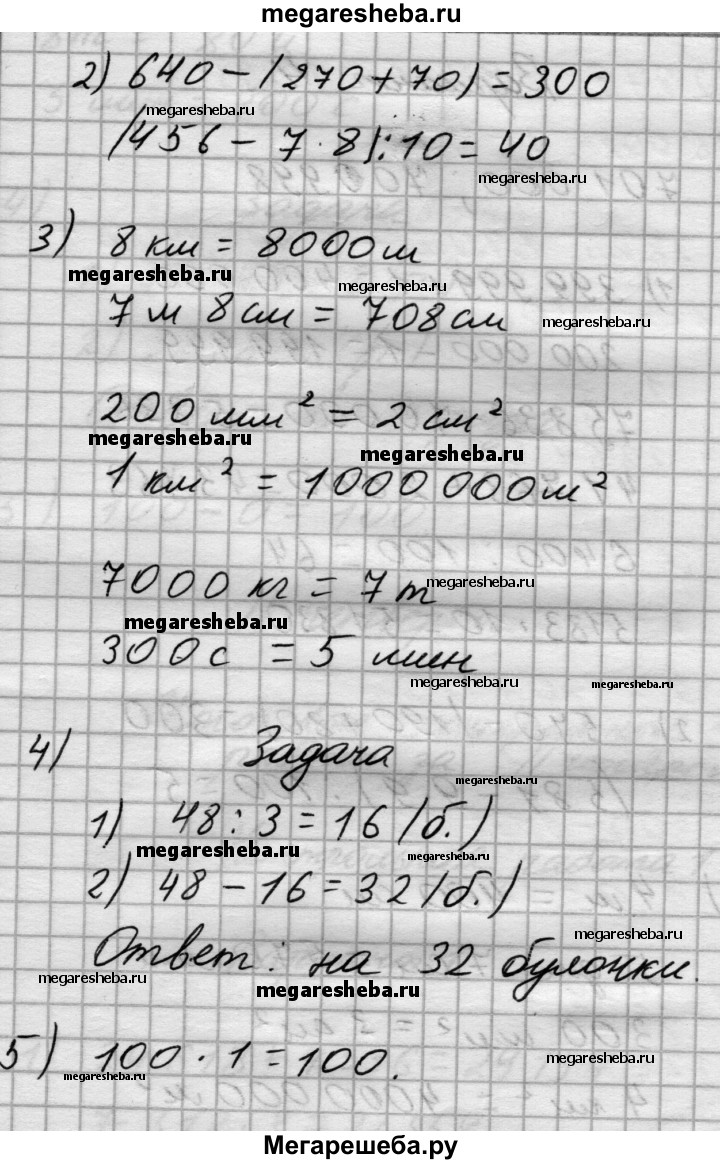 megaresheba.ru
2) 640 - (270 + 70) = 300
megaresheba.ru
(456 - 7 · 8) : 10 = 40
megaresheba.ru
3) 8 км = 8000 м
megaresheba.ru megaresheba.ru
7 м 8 см = 708 см megaresheba.ru
200 мм² = 2 см²
megaresheba.ru megaresheba.ru
1 км² = 1000 000 м²
7000 кг = 7 т megaresheba.ru
megaresheba.ru
300 с = 5 мин
megaresheba.ru megaresheba.ru
4) Задача
megaresheba.ru
1) 48 : 3 = 16 (б.)
megaresheba.ru
2) 48 - 16 = 32 (б.)
megaresheba.ru
Ответ: на 32 булочки.
megaresheba.ru megaresheba.ru
5) 100 · 1 = 100. megaresheba.ru
megaresheba.ru
Мегарешеба.ру